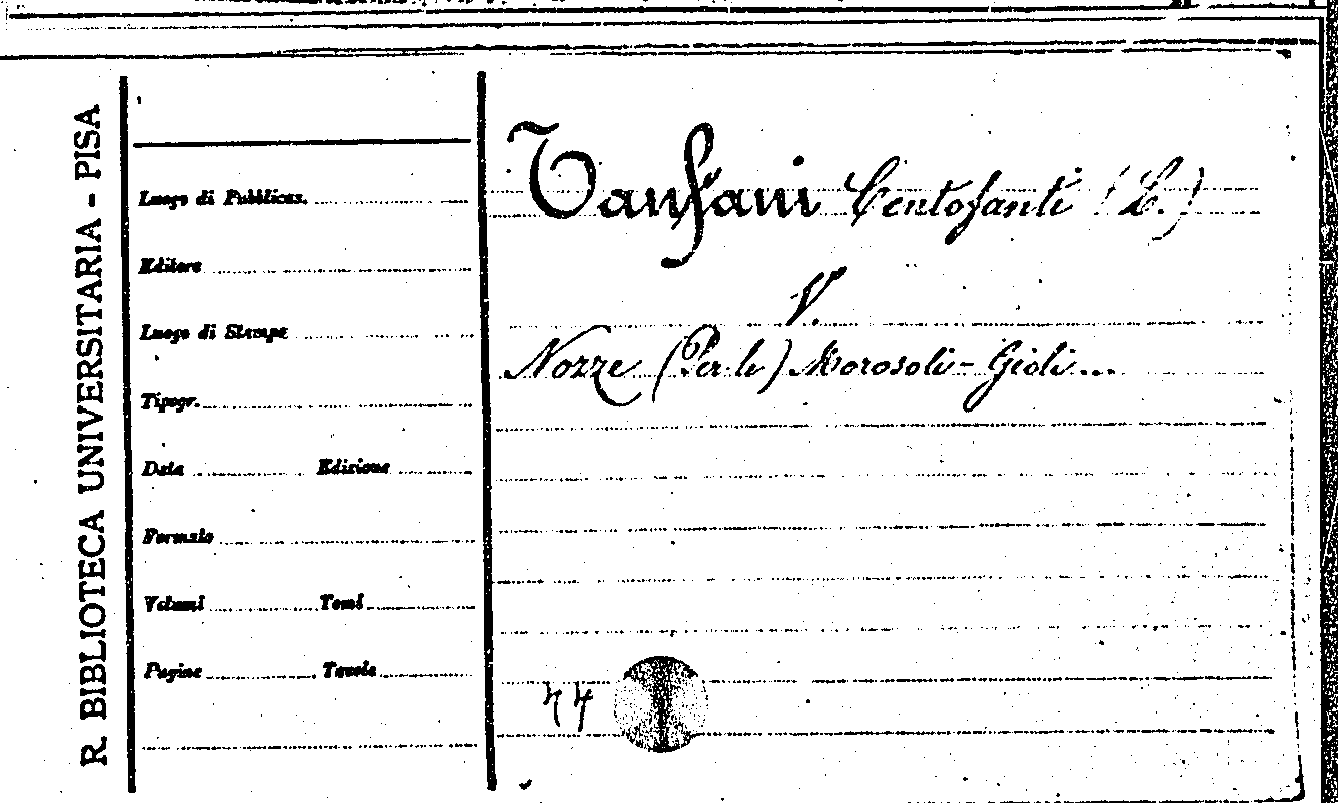 R. BIBLIOTECA UNIVERSITARIA - PISA
Luogo di Pubblicaz.
Editore
Luogo di Stampa
Tipogr.
Data Edizione
Formato
Volumi Tomi
Pagine Tavole
Tanfani Centofanti (L.)
V.
Nozze (Per le) Morosoli-Gioli...